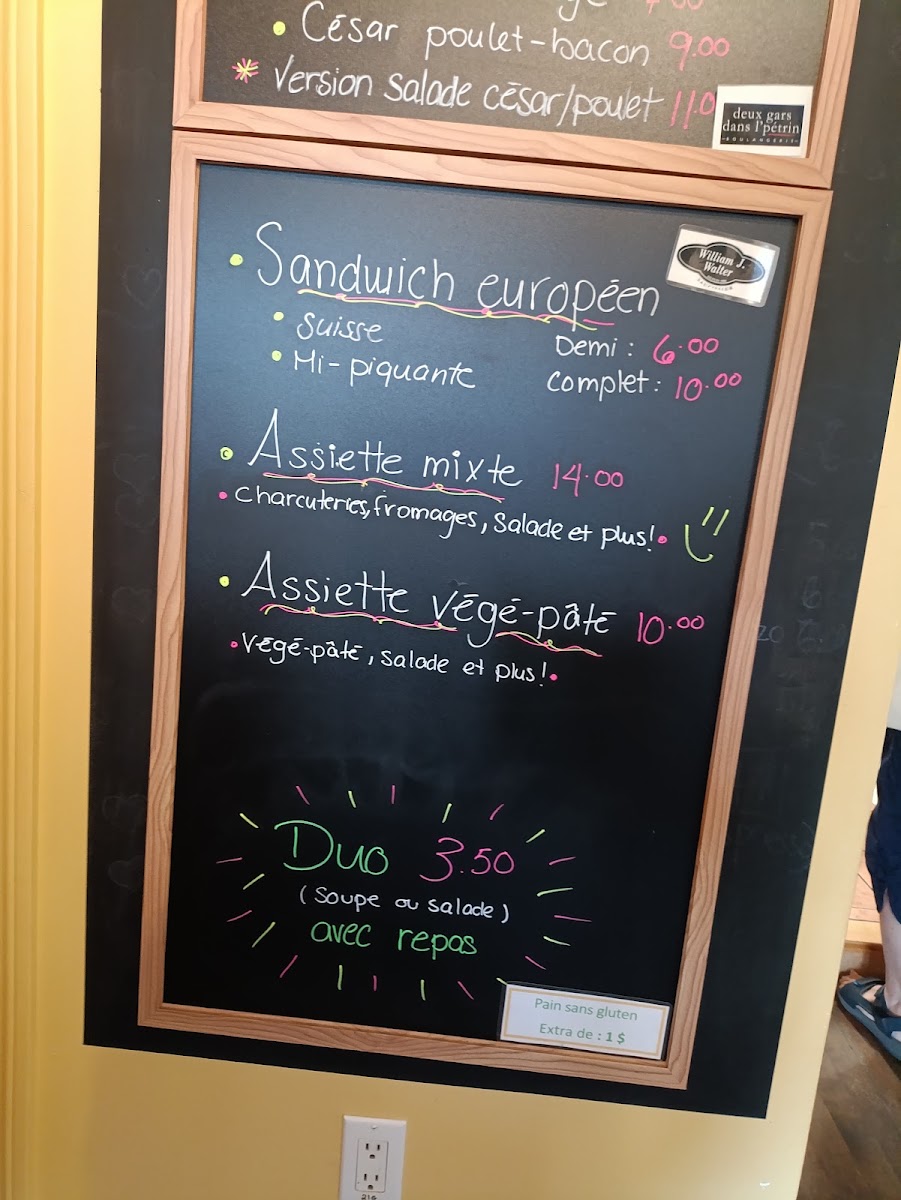 César poulet-bacon 9.00
* Version salade césar/poulet 11.0
deux gars
dans l'pétrin
BOULANGERIE
• Sandwich européen
William J.
Walter
• Suisse
Demi : 6.00
• Mi-piquante
complet : 10.00
• Assiette mixte 14.00
• charcuteries, fromages, salade et plus! •
• Assiette végé-pâté 10.00
• végé-pâté, salade et plus! •
Duo 3.50
(soupe ou salade)
avec repas
Pain sans gluten
Extra de : 1 $